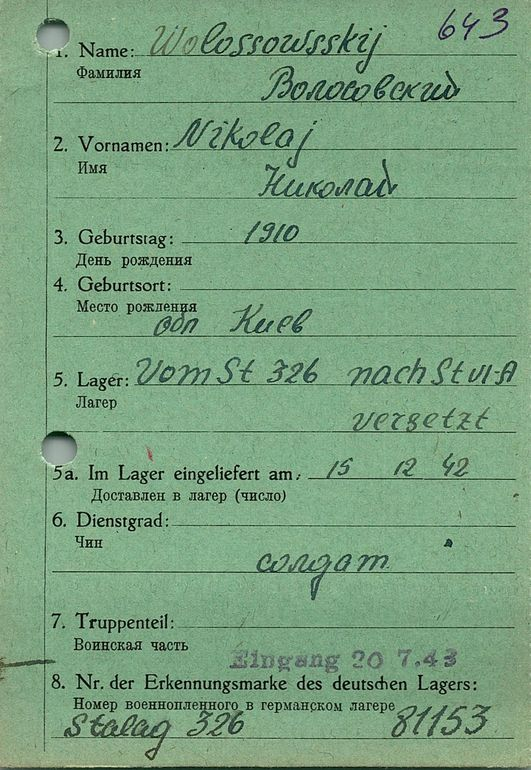 643
1. Name: Wolossowsskij
Фамилия
Волосовский
2. Vornamen: Nikolaj
Имя
Николай
3. Geburtstag: 1910
День рождения
4. Geburtsort:
Место рождения
обл Киев
5. Lager: Vom St 326 nach St VI-A
Лагер
versetzt
5a. Im Lager eingeliefert am: 15 12 42
Доставлен в лагер (число)
6. Dienstgrad:
Чин
солдат
7. Truppenteil:
Воинская часть
Eingang 20 7.43
8. Nr. der Erkennungsmarke des deutschen Lagers:
Номер военнопленного в германском лагере
Stalag 326 81153